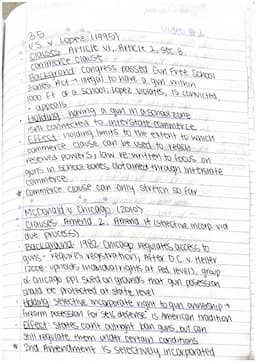 3G Video #2
U.S. v. Lopez (1995)
• Clauses: Article VI, Article 2, sec. 8
commerce clause
• Background: Congress passed Gun Free School
Zones Act → illegal to have a gun within
1000 ft of a school; Lopez violates, is convicted,
appeals
• Holding: having a gun in a school zone
isn't connected to interstate commerce
• Effect: Holding limits to the extent to which
commerce clause can be used to reach
reserved powers; law re-written to focus on
guns in school zones obtained through interstate
commerce
* Commerce clause can only stretch so far
McDonald v. Chicago (2010)
• Clauses: Amend 2, Amend 14 (selective incorp via
due process)
• Background: 1982 Chicago regulates access to
guns - requires registration; After D.C. v. Heller
(2008: upholds individual rights at fed. level), group
of Chicago ppl sued on grounds that gun possession
should be protected at state level
• Holding: selective incorporate right to gun ownership →
firearm possession for self defense is American tradition
• Effect: States can't outright ban guns, but can
still regulate them under certain conditions
* 2nd Amendment is selectively incorporated